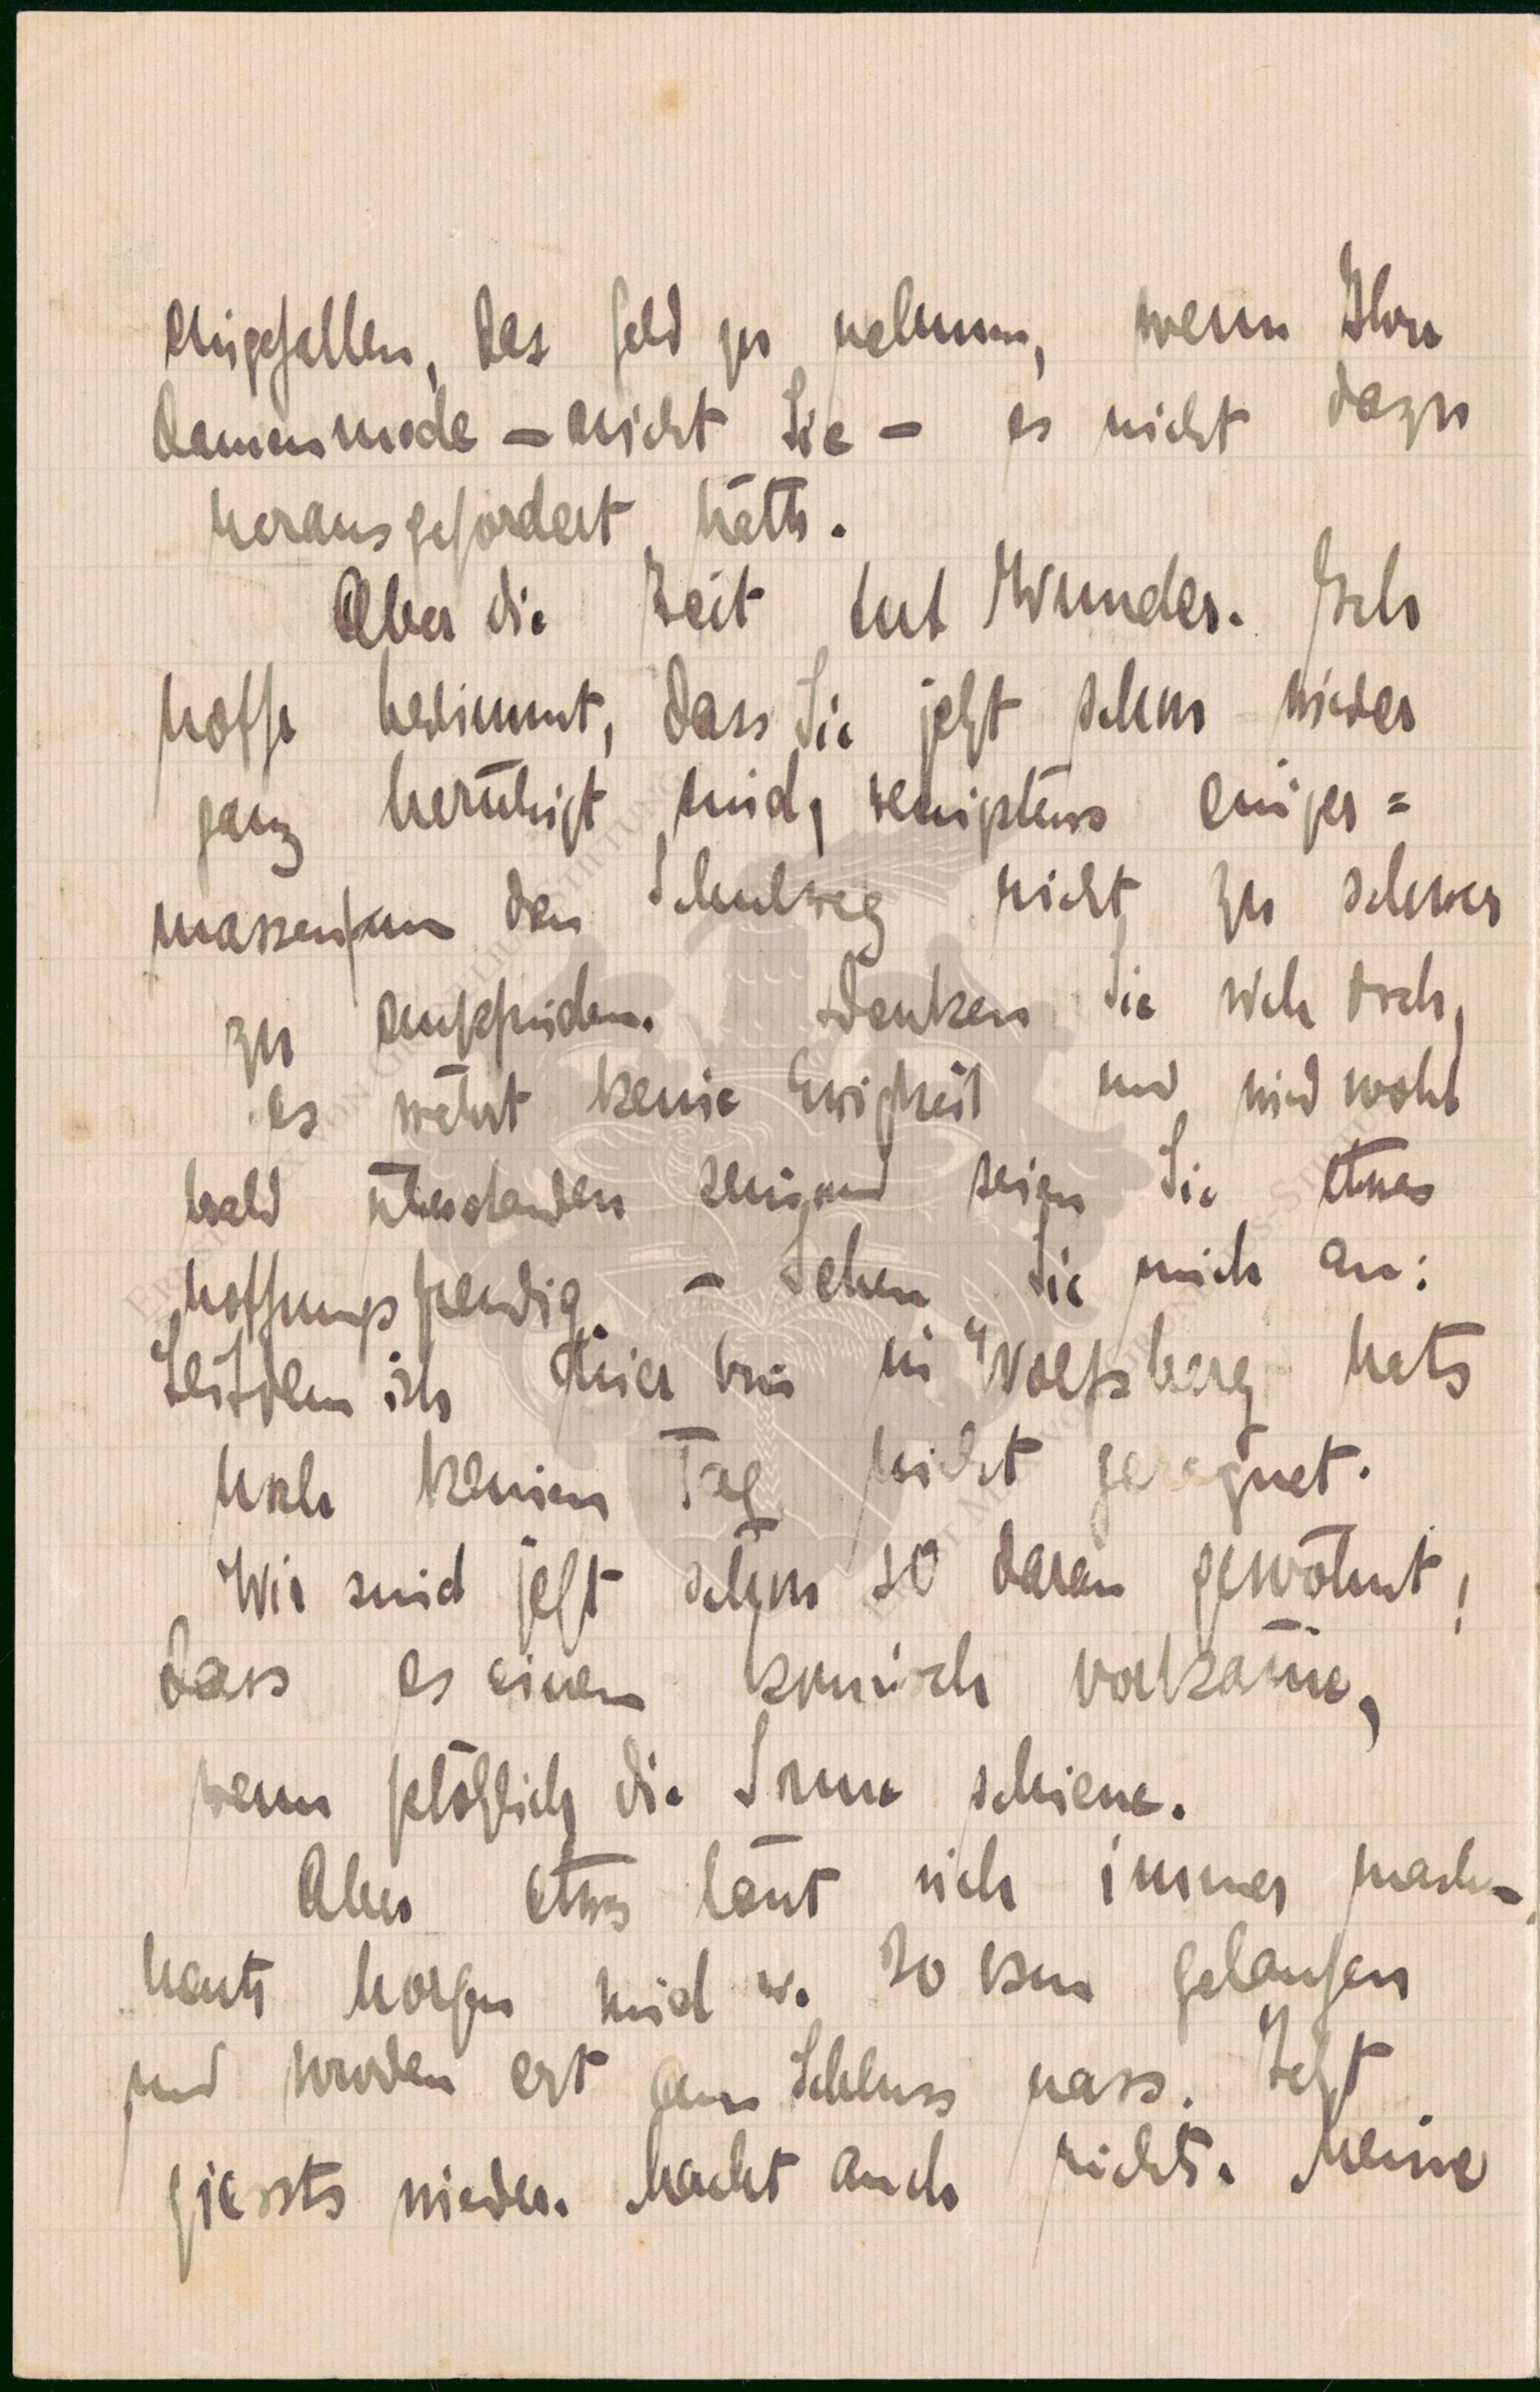 eingefallen, das Geld zu nehmen, wenn Ihre
Damenmode – nicht Sie – es nicht dazu
herausgefordert hätte.
Aber die Zeit tut Wunder. Ich
hoffe bestimmt, dass Sie jetzt schon wieder
ganz beruhigt sind, wenigstens einiger=
massen um den Schulweg nicht zu schwer
zu empfinden. Denken Sie sich doch,
es währt keine Ewigkeit und wird wohl
bald überstanden sein und seien Sie etwas
hoffnungsfreudig – Sehen Sie mich an:
Seitdem ich hier bin in Wolfsberg hats
noch keinen Tag nicht geregnet.
Wir sind jetzt schon so daran gewöhnt,
dass es einem komisch vorkäme,
wenn plötzlich die Sonne schiene.
Aber etwas lässt sich immer machen,
heute morgen sind w. 30 km gelaufen
und wurden erst am Schluss nass. Jetzt
giessts wieder. Macht auch nichts. Meine